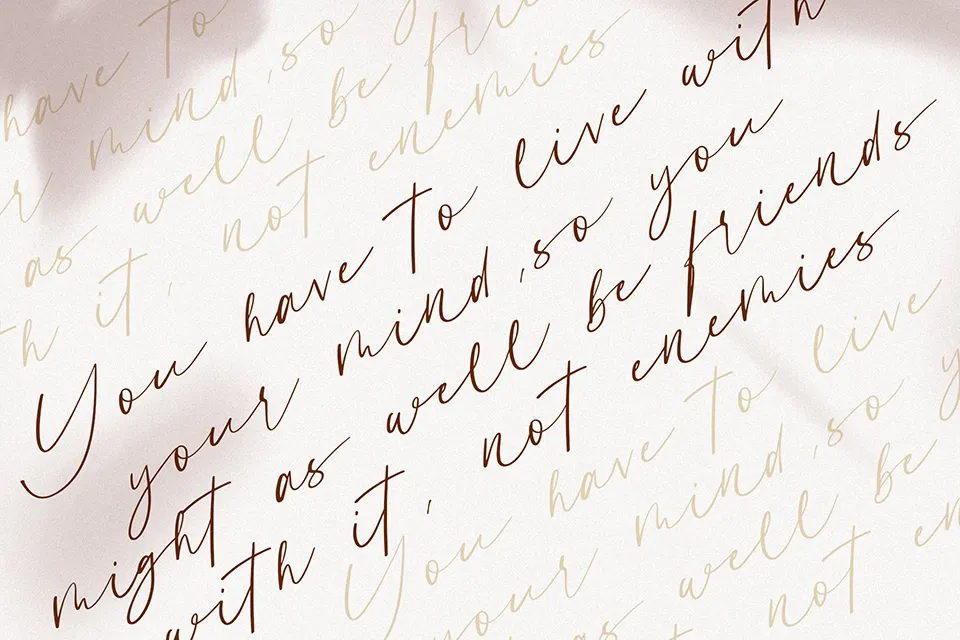 have to
r mind ,so y
as well be fri
th it, not enemies
You have to live with
your mind ,so you
might as well be friends
with it, not enemies
You have to live
your mind ,so y
as well be
not en